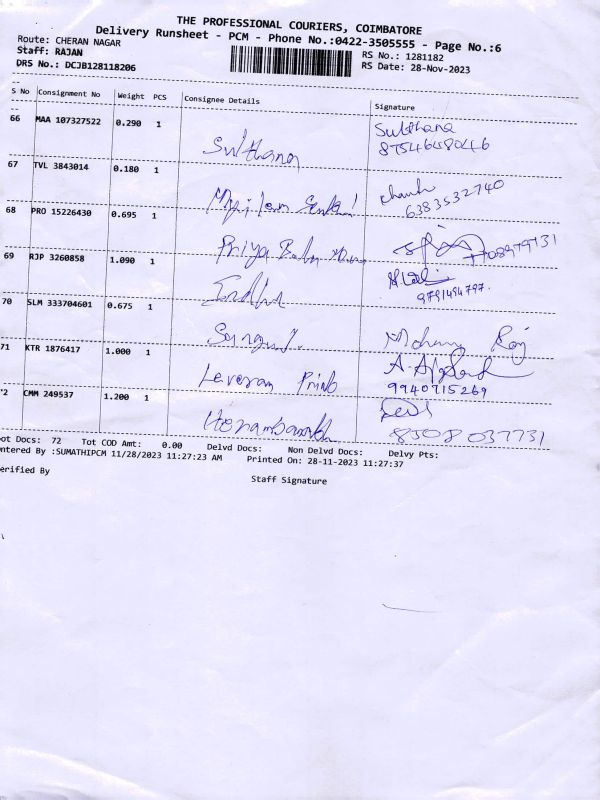 THE PROFESSIONAL COURIERS, COIMBATORE
Delivery Runsheet - PCM - Phone No.:0422-3505555 - Page No.:6
Route: CHERAN NAGAR
Staff: RAJAN
DRS No.: DCJB128118206
RS No.: 1281182
RS Date: 28-Nov-2023
S No Consignment No Weight PCS Consignee Details Signature
66 MAA 107327522 0.290 1 Sulthana Sulthana
8754648046
67 TVL 3843014 0.180 1
6383532740
68 PRO 15226430 0.695 1 Priya
69 RJP 3260858 1.090 1 Indhu
9791494797.
70 SLM 333704601 0.675 1 Mohan Raj
71 KTR 1876417 1.000 1
9940715269
72 CMM 249537 1.200 1
8508 037731
ot Docs: 72 Tot COD Amt: 0.00 Delvd Docs: Non Delvd Docs: Delvy Pts:
ntered By :SUMATHIPCM 11/28/2023 11:27:23 AM Printed On: 28-11-2023 11:27:37
erified By
Staff Signature